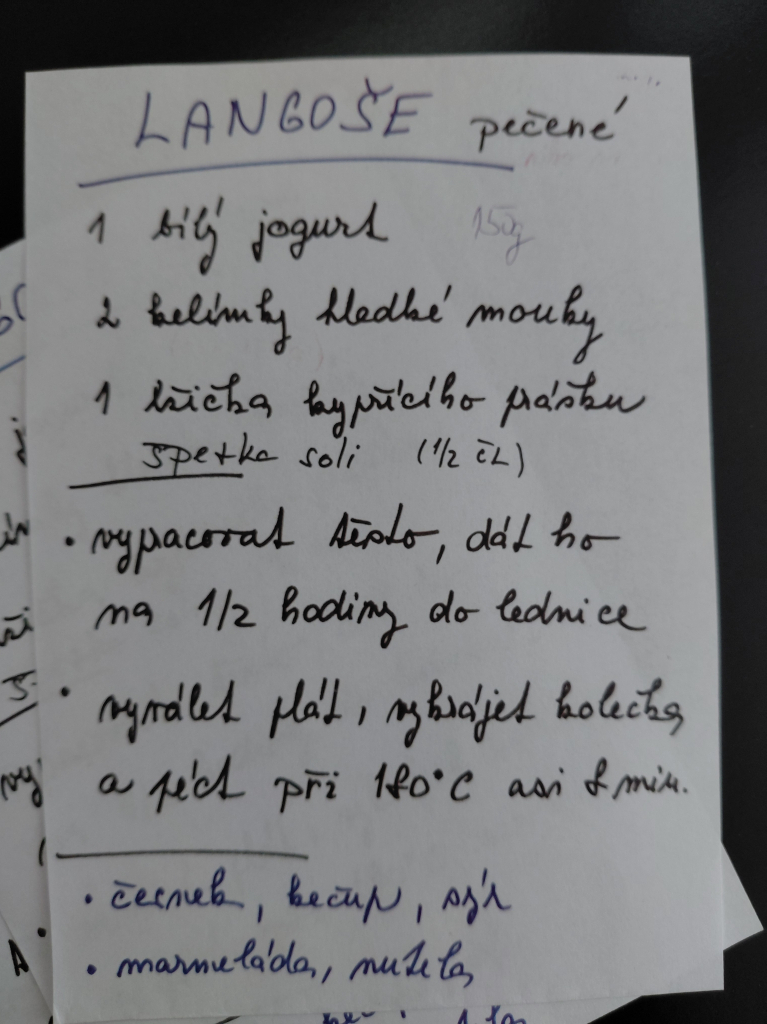 LANGOŠE pečené
1 bílý jogurt 150g
2 kelímky hladké mouky
1 lžička kypřícího prášku
špetka soli (1/2 čL)
• vypracovat těsto, dát ho
na 1/2 hodiny do lednice
• vyválet plát, vykrájet kolečka
a péct při 180°C asi 8 min.
• česnek, kečup, sýr
• marmeláda, nutela